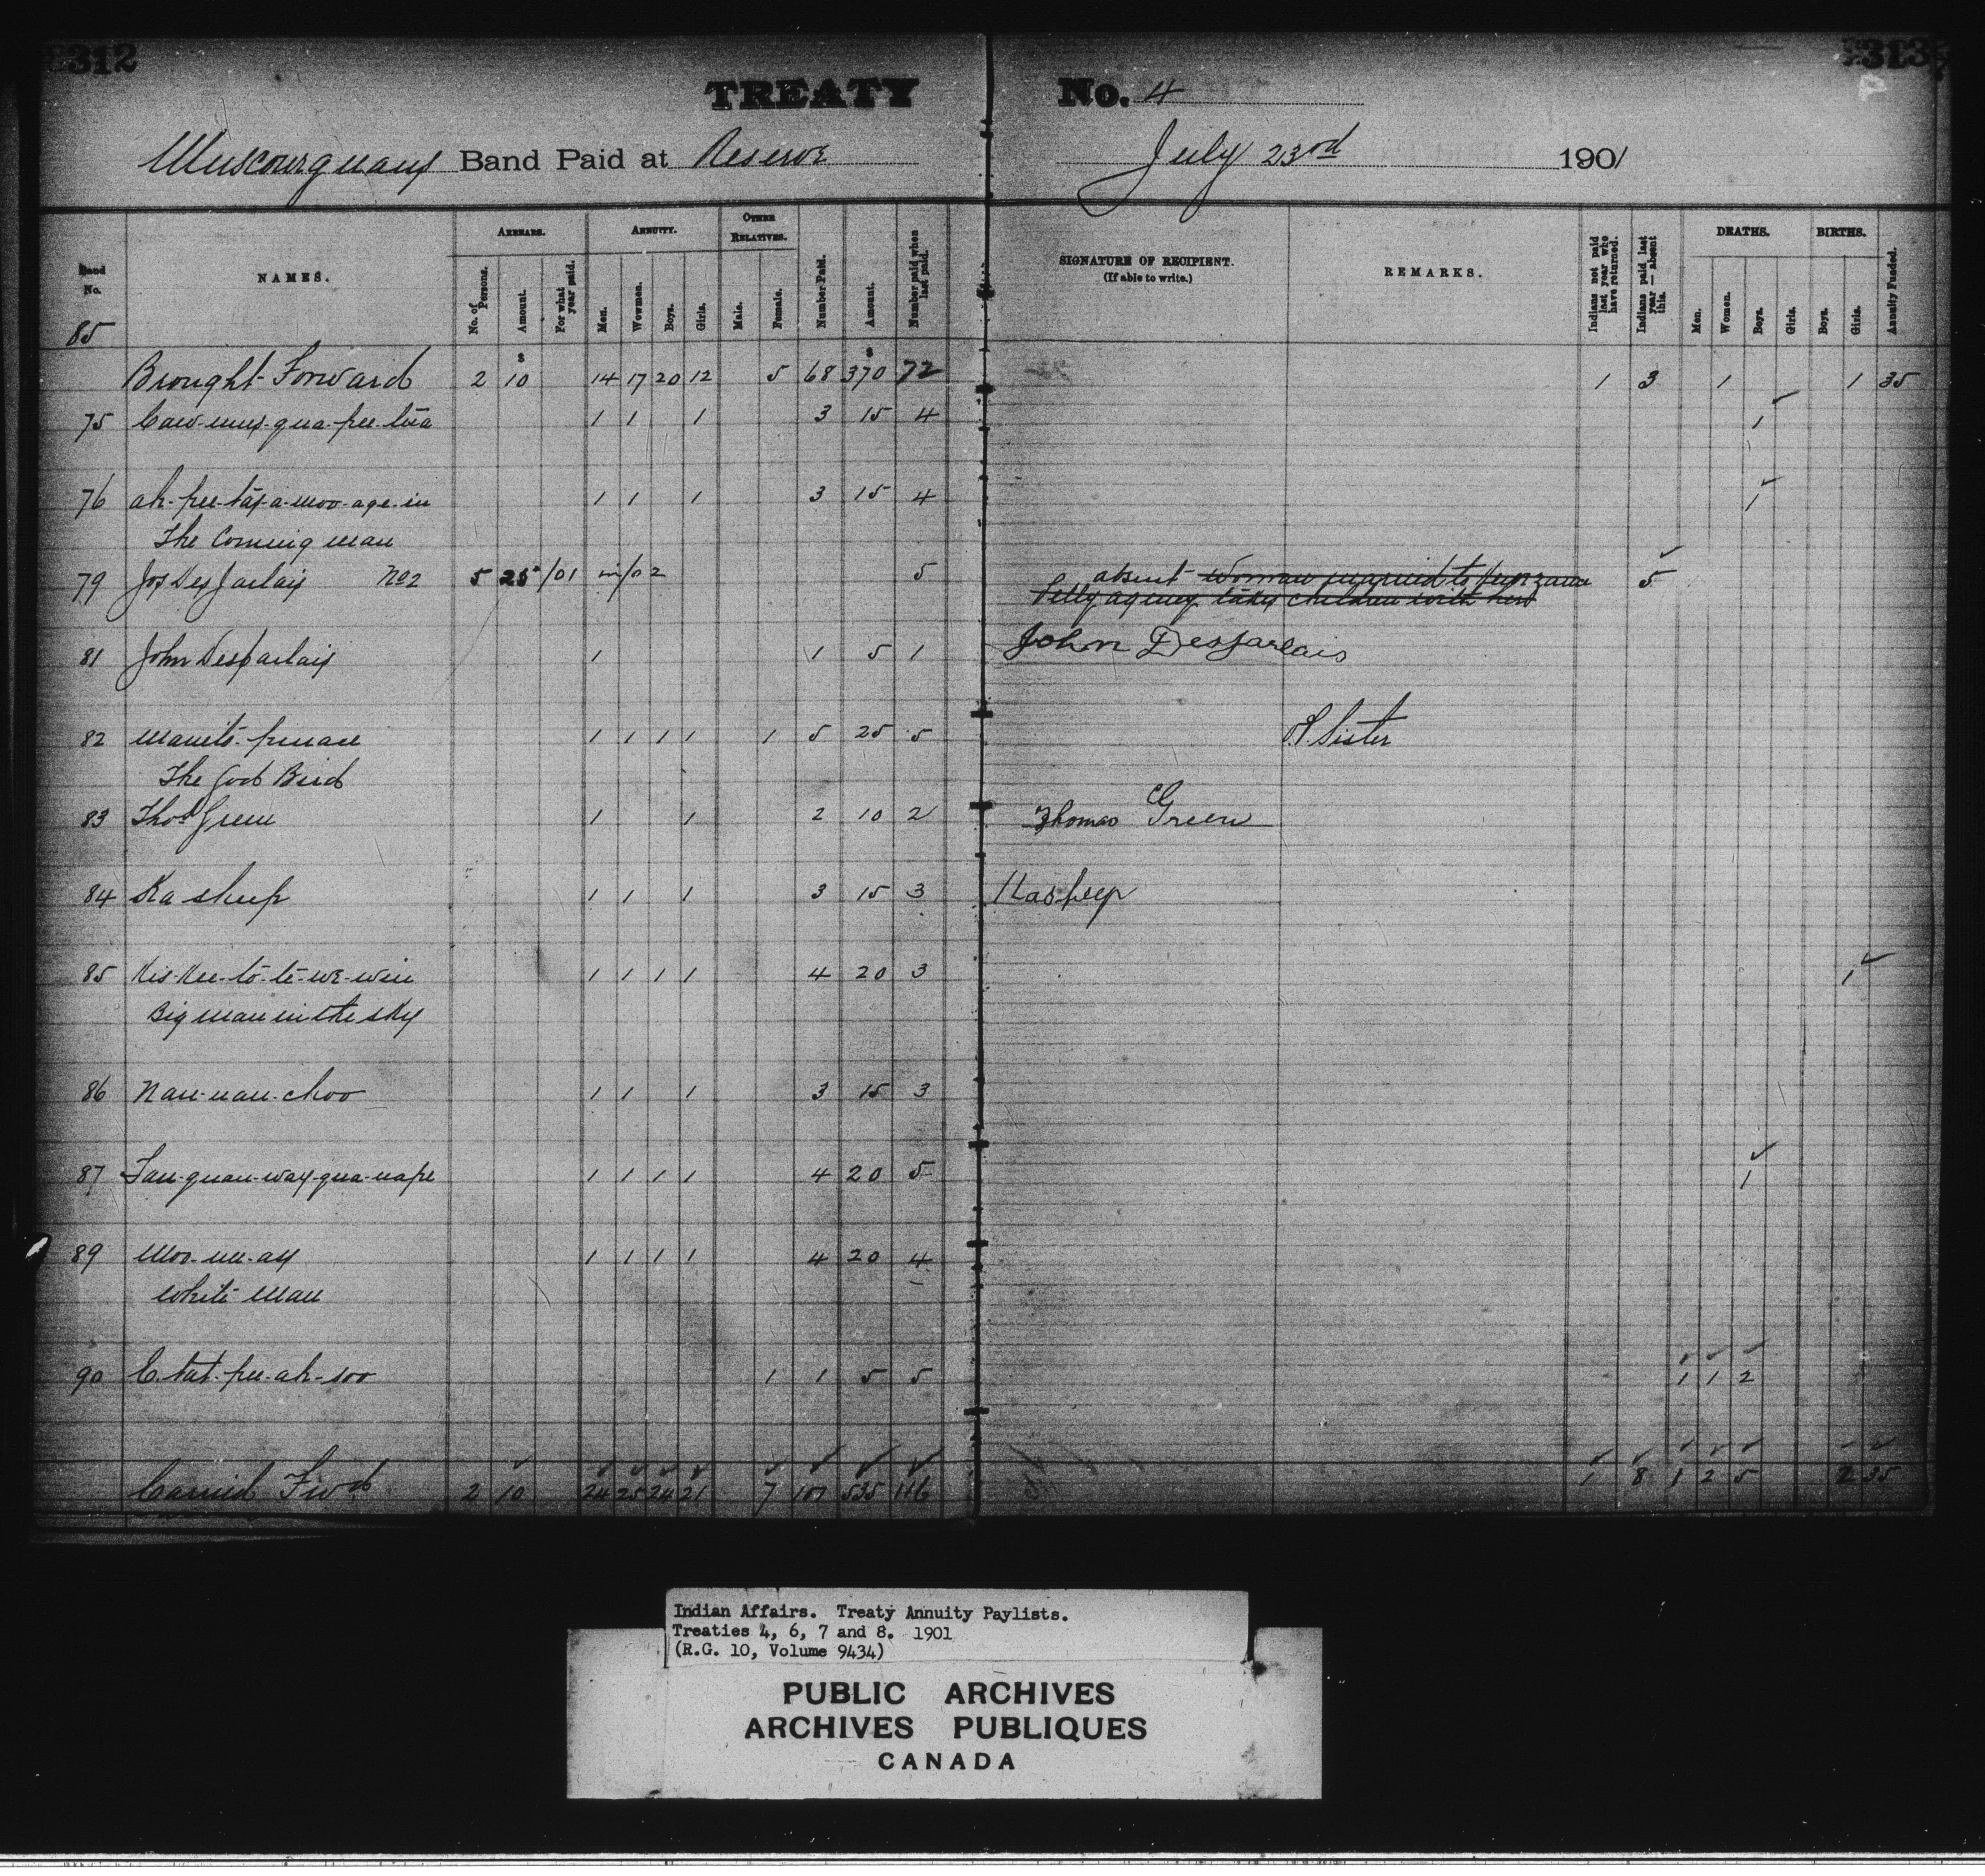 312
313
TREATY No. 4
Muscowequans Band Paid at Reserve July 23rd 1901
Band No. NAMES. ARREARS. ANNUITY. OTHER RELATIVES. Number Paid. Amount. Number paid when last paid. SIGNATURE OF RECIPIENT. (If able to write.) REMARKS. Indians not paid last year who have returned. Indians paid last year — absent this. DEATHS. BIRTHS. Annuity Funded.
No. of Persons. Amount. For what year paid. Men. Wowmen. Boys. Girls. Male. Female. Men. Women. Boys. Girls. Boys. Girls.
85
$ $
Brought Forward 2 10 14 17 20 12 5 68 370 72 1 3 1 1 35
75 1 1 1 3 15 4 1
76 ah-pee-tay-a-moo-age-in 1 1 1 3 15 4 1
The Coming man
79 Jos DesJarlais No2 5 25 /01 in/02 5 absent woman married to 5
Pelly agency takes children with her
81 John DesJarlais 1 1 5 1 John DesJarlais
82 Manito-pinace 1 1 1 1 1 5 25 5 Sister
The God Bird
83 Thos Green 1 1 2 10 2 Thomas Green
84 Ka sheep 1 1 1 3 15 3 Kasheep
85 Kis-Kee-to-te-we-win 1 1 1 1 4 20 3 1
Big man in the sky
86 Nau-nau-choo 1 1 1 3 15 3
87 1 1 1 1 4 20 5 1
89 Moo-ne-ay 1 1 1 1 4 20 4
White man
90 E-tat-pee-ah-soo 1 1 5 5 1 1 2
Carried Fwd 2 10 24 25 24 21 7 101 535 116 1 8 1 2 5 2 35
Indian Affairs. Treaty Annuity Paylists.
Treaties 4, 6, 7 and 8. 1901
(R.G. 10, Volume 9434)
PUBLIC ARCHIVES
ARCHIVES PUBLIQUES
CANADA